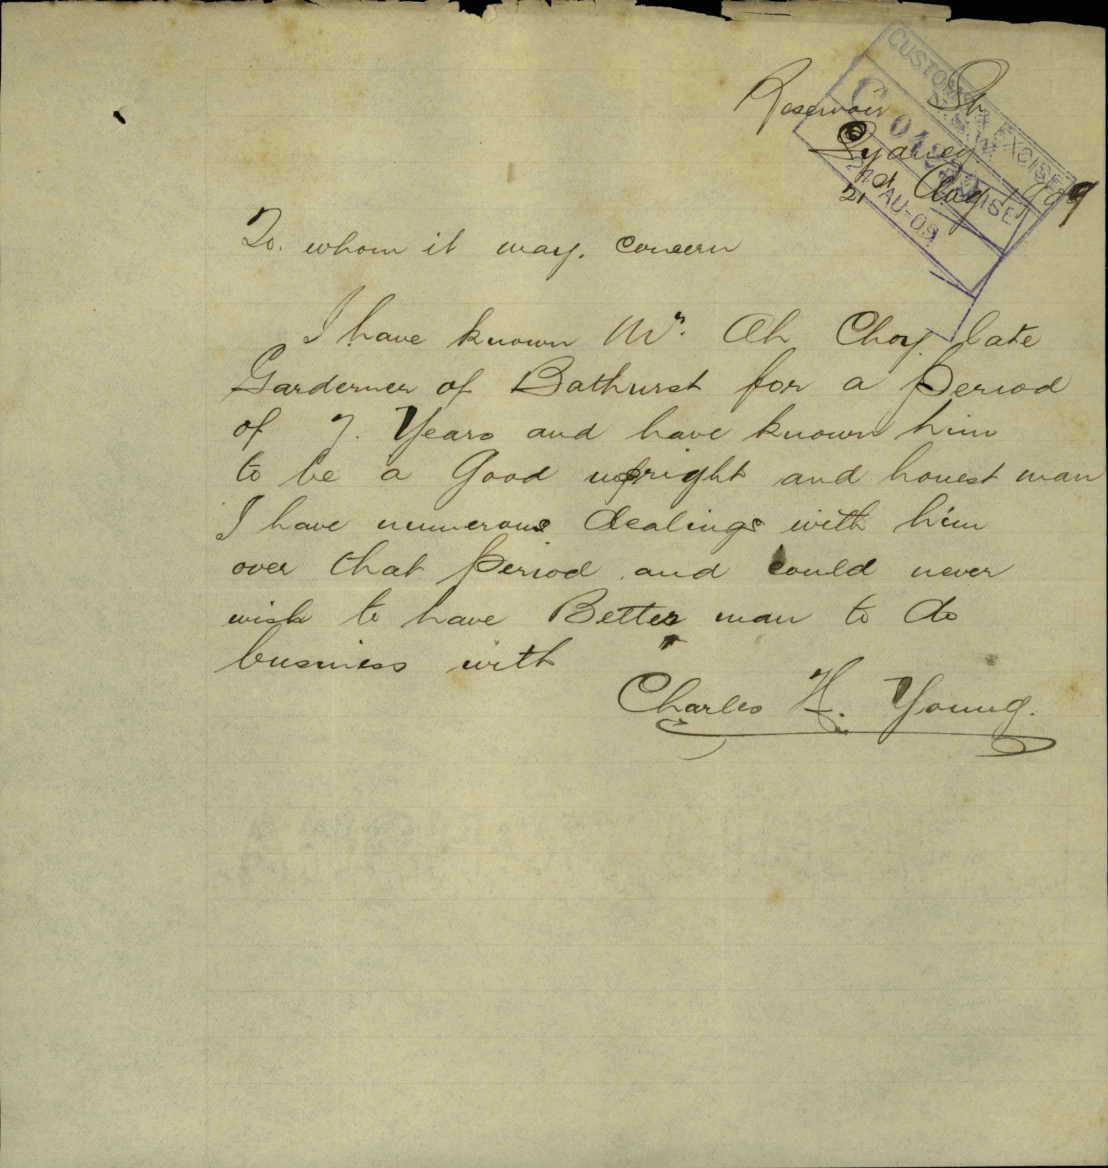 Reservoir St
Sydney
21st Aug 1909
CUSTOMS & EXCISE
N.S.W.
AU-09
To. whom it may. concern
I have known Mr. Ah Choy late
Garderner of Bathurst for a Period
of 7. Years and have known him
to be a Good upright and honest man
I have numerous dealings with him
over that Period and could never
wish to have Better man to do
business with
Charles H. Young.